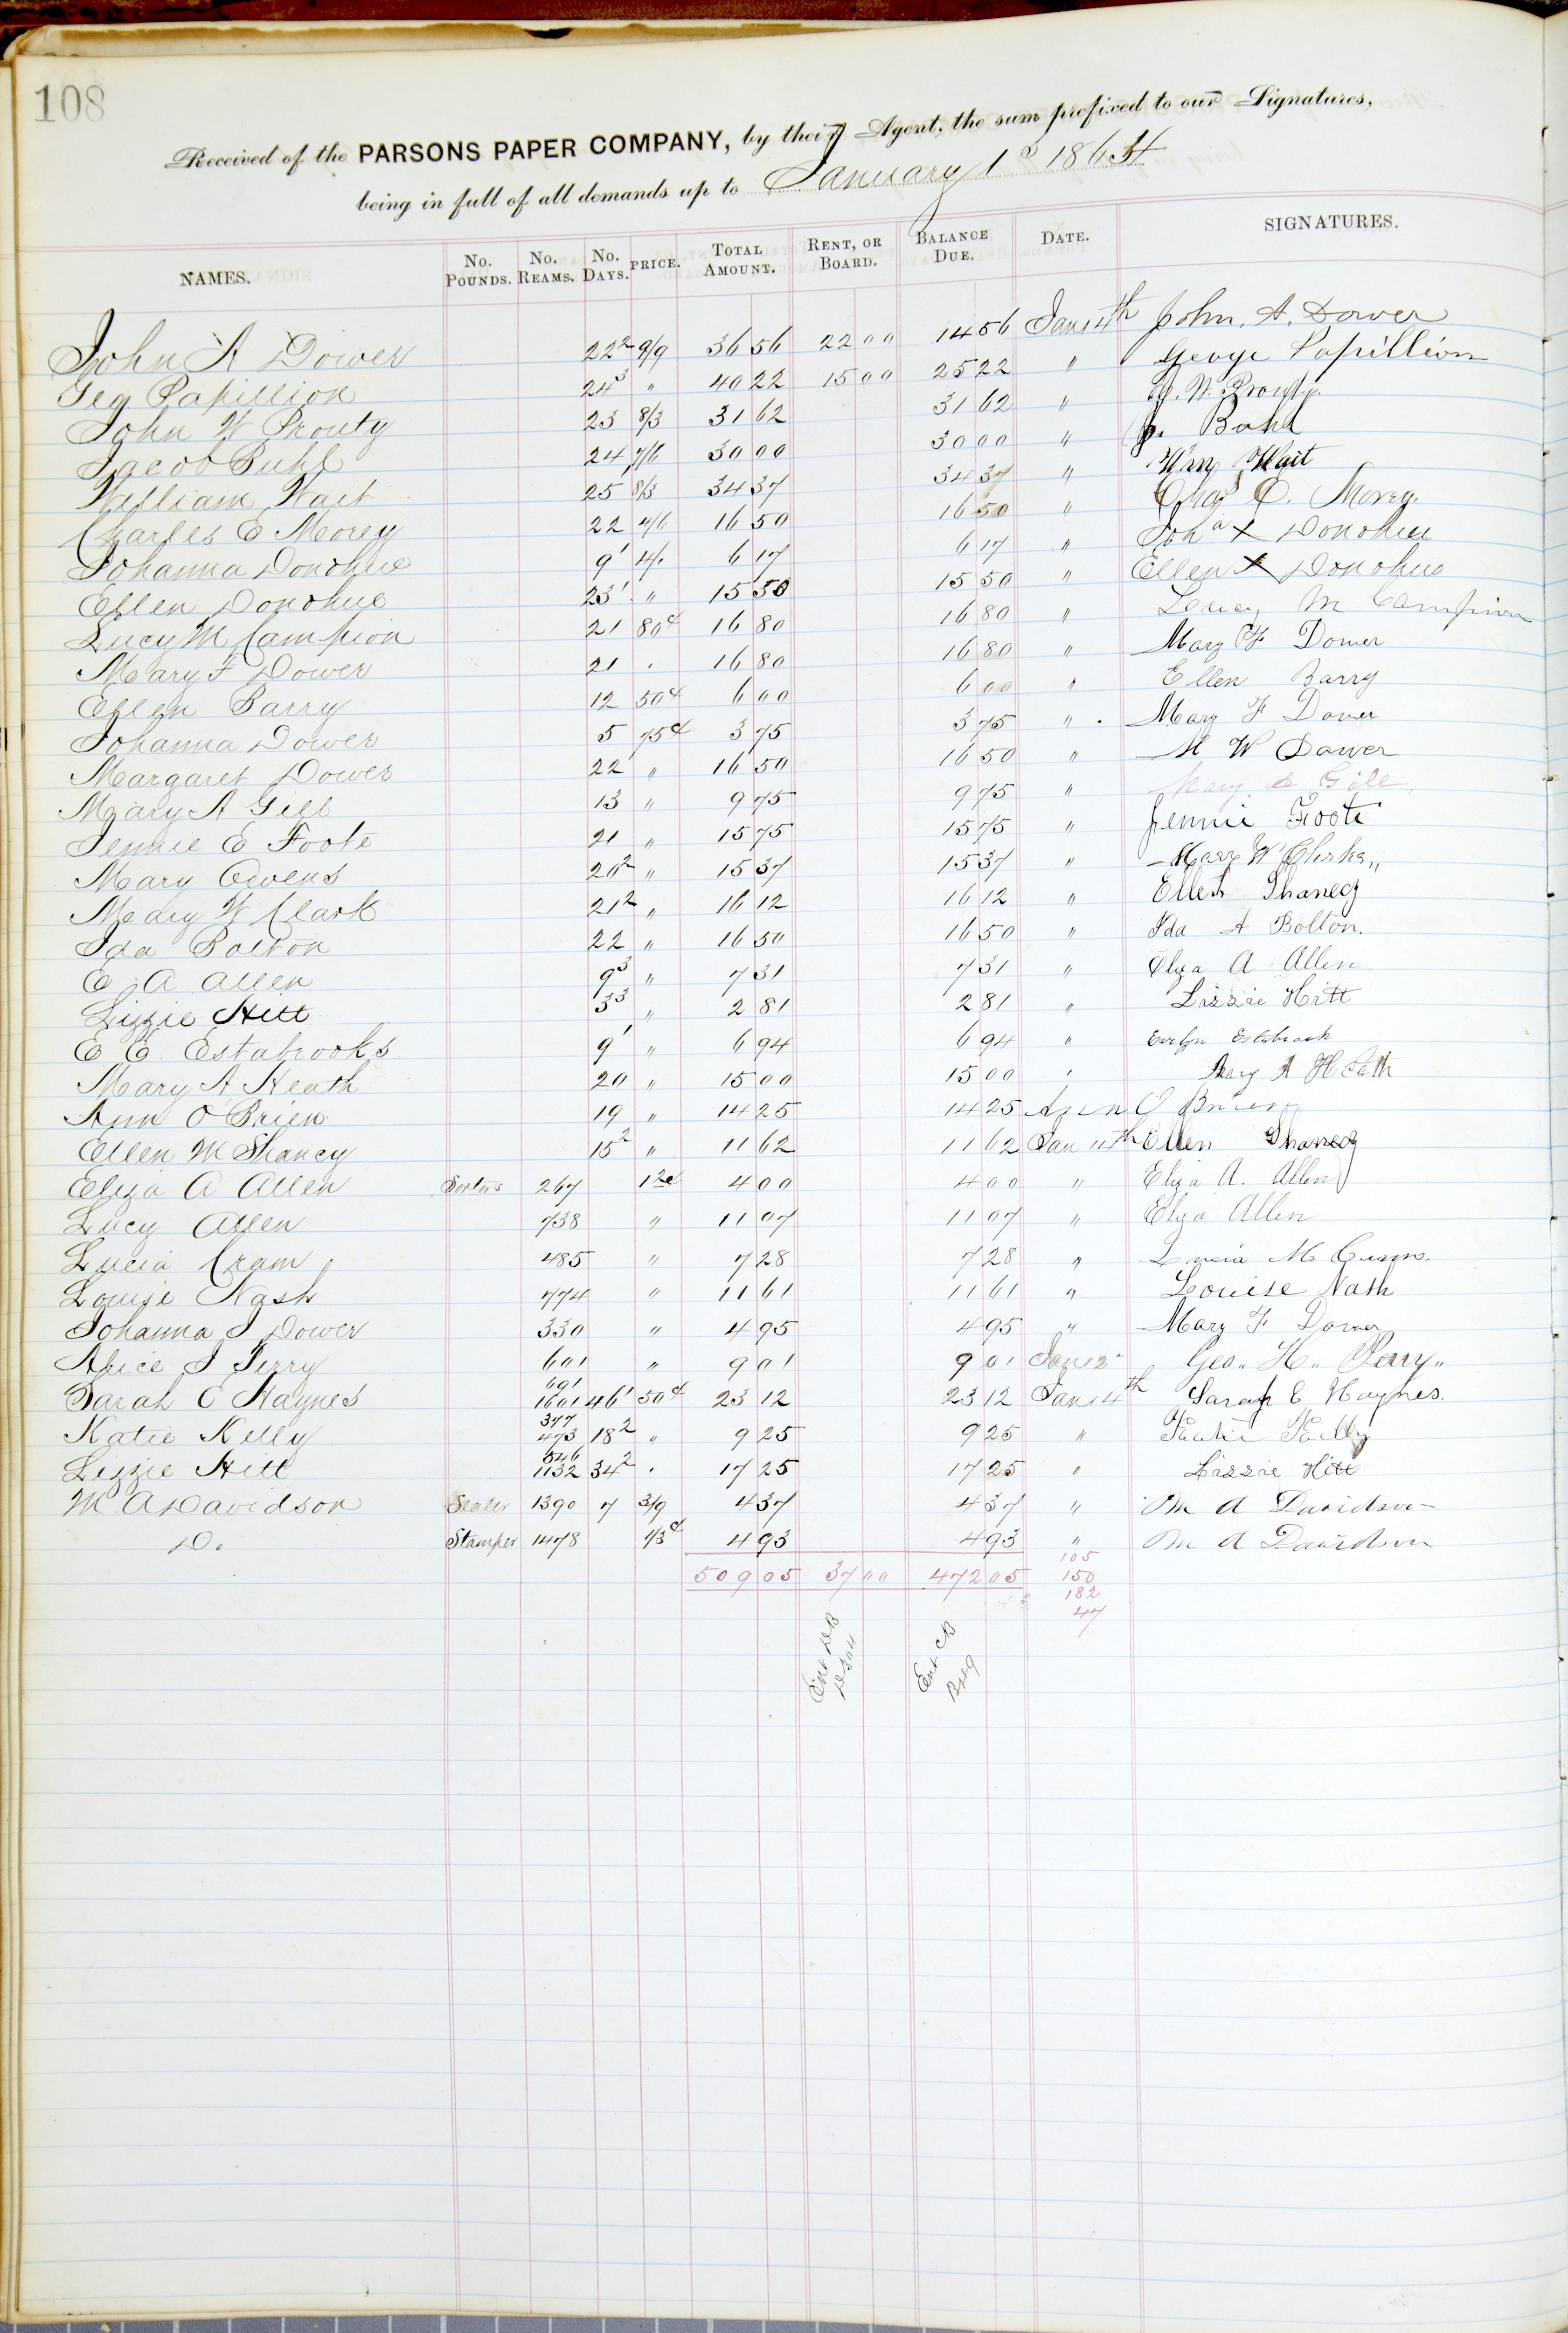 108
Received of the PARSONS PAPER COMPANY, by their Agent, the sum prefixed to our Signatures,
being in full of all demands up to January 1st 1864
NAMES. No. POUNDS. No. REAMS. No. DAYS. PRICE. TOTAL AMOUNT. RENT, OR BOARD. BALANCE DUE. DATE. SIGNATURES.
John A Dower 22² 9/9 36 56 22 00 14 56 Jan 14th John. A. Dower
Geo Papillion 24³ " 40 22 15 00 25 22 " George Papillion
John W Prouty 23 8/3 31 62 31 62 " J. W. Prouty
Jacob Buhl 24 7/6 30 00 30 00 " J. Bahl
William Wait 25 8/3 34 37 34 37 " Wm Wait
Charles E Morey 22 4/6 16 50 16 50 " Chas E. Morey.
Johanna Donohue 9¹ 4/. 6 17 6 17 " Joh a X Donohue
Ellen Donohue 23¹ " 15 50 15 50 " Ellen X Donohue
Lucy M Campion 21 80¢ 16 80 16 80 " Lucy M Campion
Mary F Dower 21 . 16 80 16 80 " Mary F Dower
Ellen Barry 12 50¢ 6 00 6 00 " Ellen Barry
Johanna Dower 5 75¢ 3 75 3 75 " . Mary F Dower
Margaret Dower 22 " 16 50 16 50 " M W Dower
Mary A Gill 13 " 9 75 9 75 " Mary A Gill
Jennie E Foote 21 " 15 75 15 75 " Jennie Foote
Mary Owens 20² " 15 37 15 37 " Mary W Clarke
Mary W Clark 21² " 16 12 16 12 " Ellen Shanecy
Ida Bolton 22 " 16 50 16 50 " Ida A Bolton.
E A Allen 9³ " 7 31 7 31 " Eliza A Allen
Lizzie Hitt 3³ " 2 81 2 81 " Lizzie Hitt
E E Estabrooks 9¹ " 6 94 6 94 " Estabrook
Mary A Heath 20 " 15 00 15 00 " Mary A Heath
Ann O'Brien 19 " 14 25 14 25 Ann O Brien
Ellen M Shancy 15² " 11 62 11 62 Jan 14th Ellen Shanecy
Eliza A Allen Sorters 267 1½¢ 4 00 4 00 " Eliza A. Allen
Lucy Allen 738 " 11 07 11 07 " Eliza Allen
Lucia Cram 485 " 7 28 7 28 " Lucia M Cram.
Louise Nash 774 " 11 61 11 61 " Louise Nash
Johanna S Dower 330 " 4 95 4 95 " Mary F Dower
Alice S Perry 601 " 9 01 9 01 Jan 12 Geo. H. Perry
Sarah E Haynes 691 1601 46¹ 50¢ 23 12 23 12 Jan 14th Sarah E Haynes.
Katie Kelly 377 473 18² " 9 25 9 25 " Katie Kelly
Lizzie Hitt 546 1132 34² . 17 25 17 25 " Lizzie Hitt
M A Davidson Sealer 1390 7 3/9 4 37 4 37 " M A Davidson
Do. Stamper 1478 1/3¢ 4 93 4 93 " M A Davidson
509 05 37 00 472 05
105
150
182
47
Ent DB
Ent CB